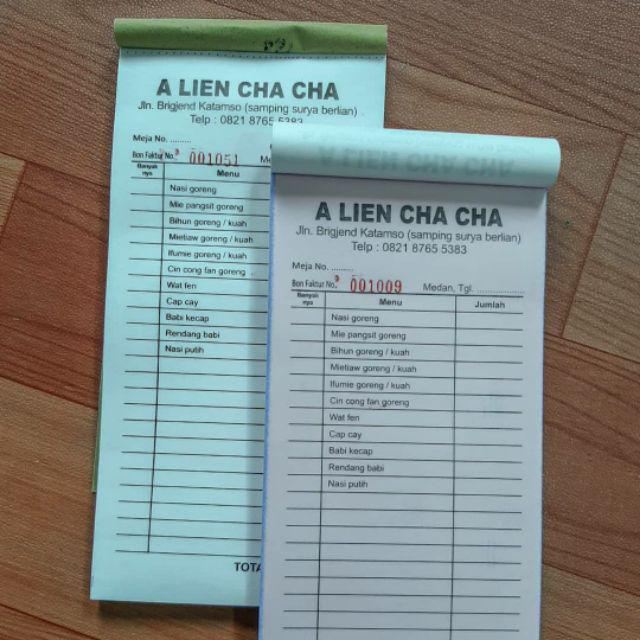 A LIEN CHA CHA
Jln. Brigjend Katamso (samping surya berlian)
Telp : 0821 8765 5383
Meja No. .........
Bon Faktur No. 001051 Me
Banyak nya Menu
Nasi goreng
Mie pangsit goreng
Bihun goreng / kuah
Mietiaw goreng / kuah
Ifumie goreng / kuah
Cin cong fan goreng
Wat fen
Cap cay
Babi kecap
Rendang babi
Nasi putih
TOTA
A LIEN CHA CHA
A LIEN CHA CHA
Jln. Brigjend Katamso (samping surya berlian)
Telp : 0821 8765 5383
Meja No. .........
Bon Faktur No. 001009 Medan, Tgl. ..................
Banyak nya Menu Jumlah
Nasi goreng
Mie pangsit goreng
Bihun goreng / kuah
Mietiaw goreng / kuah
Ifumie goreng / kuah
Cin cong fan goreng
Wat fen
Cap cay
Babi kecap
Rendang babi
Nasi putih